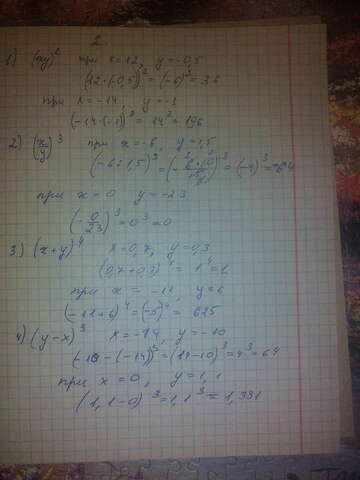 2.
1) (xy)² при x=12, y=-0,5
(12·(-0,5))²=(-6)²=36
при x=-14, y=-1
(-14·(-1))²=14²=196
2) (x/y)³ при x=-6, y=1,5
(-6:1,5)³=(-6·10/15)³=(-4)³=-64
при x=0 y=-23
(-0/23)³=0³=0
3) (x+y)⁴ x=0,7, y=0,3
(0,7+0,3)⁴=1⁴=1
при x=-11, y=6
(-11+6)⁴=(-5)⁴=625
4) (y-x)³ x=-14, y=-10
(-10-(-14))³=(14-10)³=4³=64
при x=0, y=1,1
(1,1-0)³=1,1³=1,331